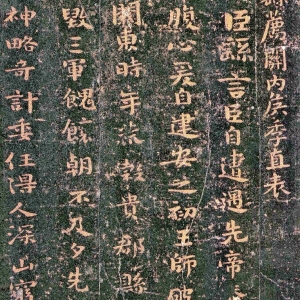 薦關內侯季直表
臣繇言臣自遭遇先帝
腹心爰自建安之初王師破
關東時年荒穀貴郡縣
毀三軍餽饟朝不及夕先
神略奇計委任得人深山窮